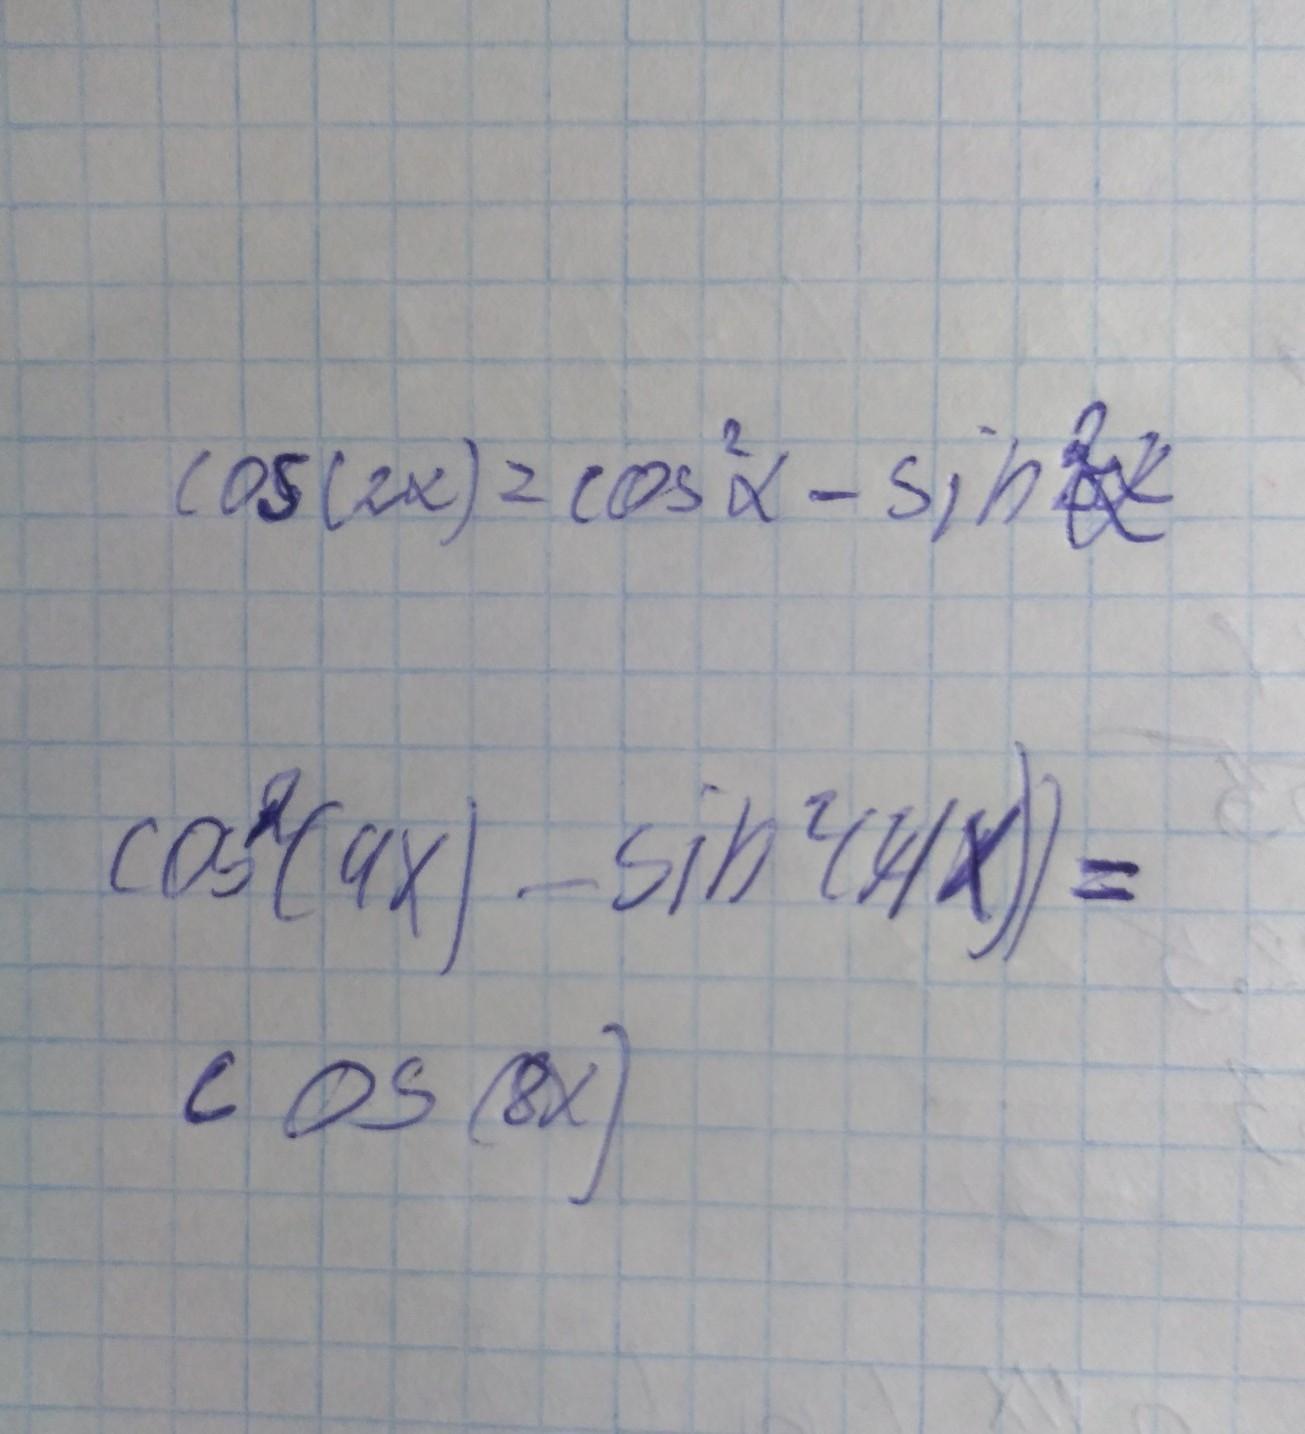 cos(2x)=cos²α-sin²α
cos²(4x)-sin²(4x))=
cos(8x)